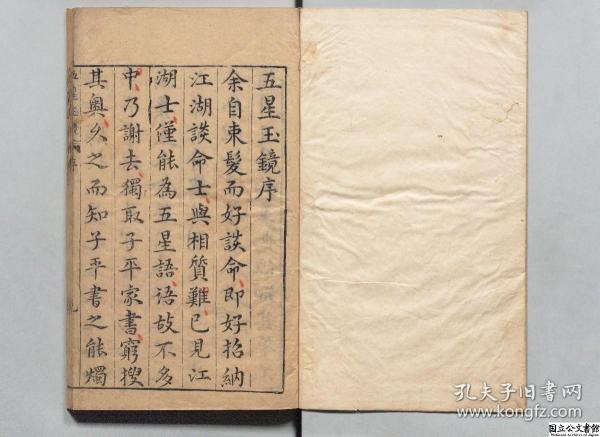 五星玉鏡序
余自束髮而好談命即好招納
江湖談命士與相質難已見江
湖士僅能為五星語語故不多
中乃謝去獨取子平家書窮搜
其奧久之而知子平書之能燭
孔夫子旧书网
www.kongfz.com
国立公文書館
National Archives of Japan